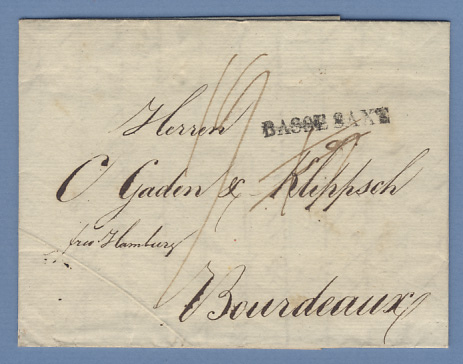 Herren
BASSE SAXE
C Gaden & Klippsch
frco Hamburg
Bourdeaux